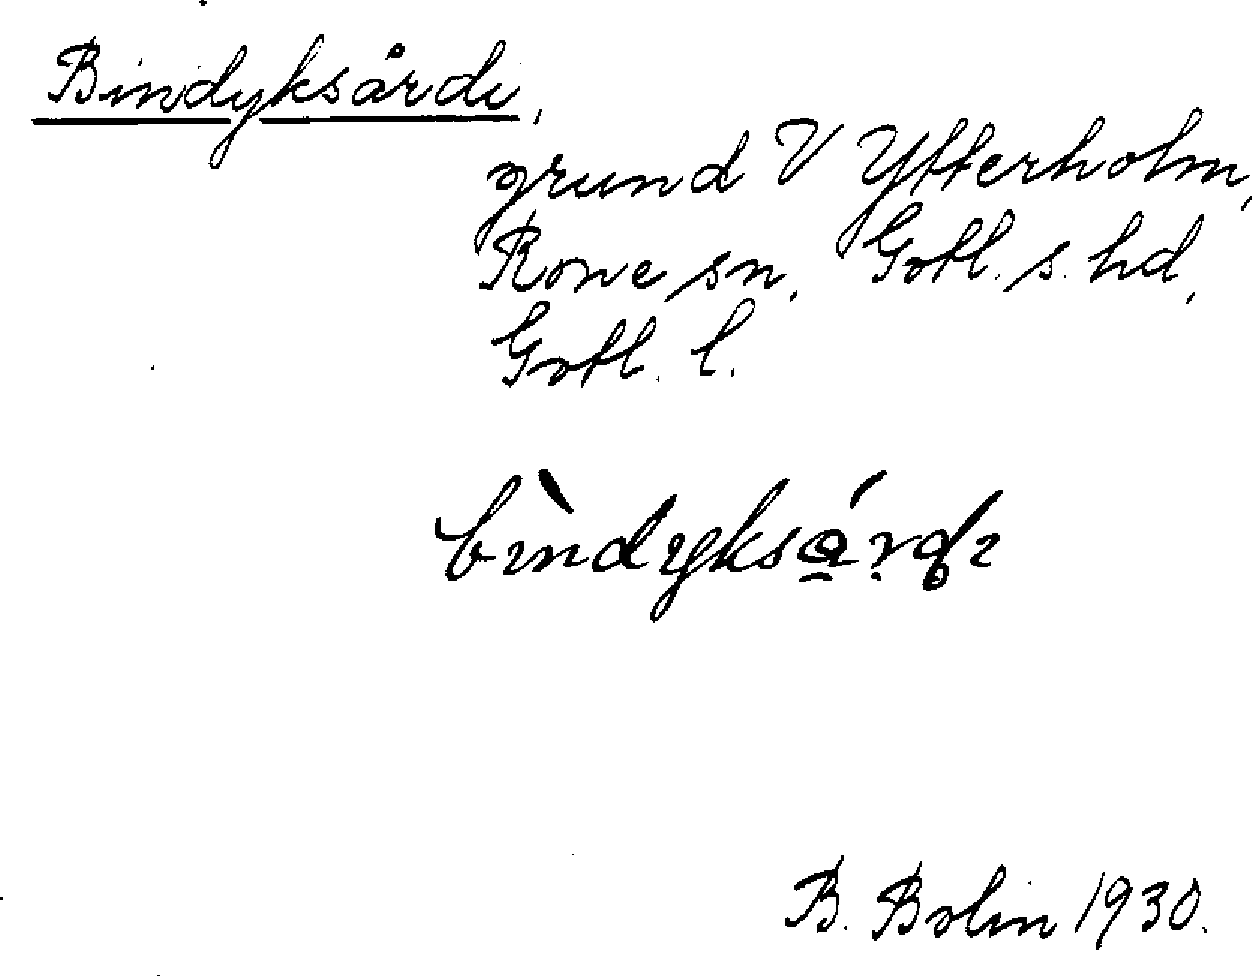 Bindyksårdi,
grund V Ytterholm,
Rone sn, Gotl. s. hd,
Gotl. l.
B. Bolin 1930.